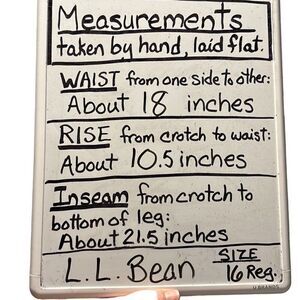 Measurements
taken by hand, laid flat.
WAIST from one side to other:
About 18 inches
RISE from crotch to waist:
About 10.5 inches
Inseam from crotch to
bottom of leg:
About 21.5 inches
L.L. Bean SIZE
16 Reg.
U BRANDS